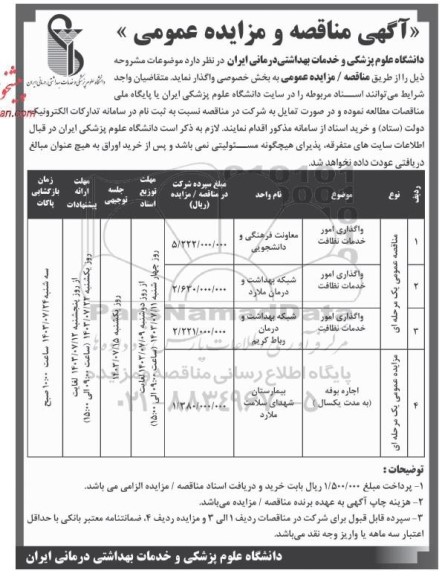 «آگهی مناقصه و مزایده عمومی»
دانشگاه علوم پزشکی و خدمات بهداشتی درمانی ایران
دانشگاه علوم پزشکی و خدمات بهداشتی درمانی ایران در نظر دارد موضوعات مشروحه
ذیل را از طریق مناقصه / مزایده عمومی به بخش خصوصی واگذار نماید. متقاضیان واجد
شرایط می‌توانند اسناد مربوطه را در سایت دانشگاه علوم پزشکی ایران یا پایگاه ملی
مناقصات مطالعه نموده و در صورت تمایل به شرکت در مناقصه نسبت به ثبت نام در سامانه تدارکات الکترونیکی
دولت (ستاد) و خرید اسناد از سامانه مذکور اقدام نمایند. لازم به ذکر است دانشگاه علوم پزشکی ایران در قبال
اطلاعات سایت های متفرقه، پذیرای هیچگونه مسئولیتی نمی باشد و پس از خرید اوراق به هیچ عنوان مبالغ
دریافتی عودت داده نخواهد شد.
ردیف نوع موضوع نام واحد مبلغ سپرده شرکت در مناقصه / مزایده (ریال) مهلت توزیع اسناد جلسه توجیهی مهلت ارائه پیشنهادات زمان بازگشایی پاکات
مناقصه عمومی یک مرحله ای
۱ واگذاری امور خدمات نظافت معاونت فرهنگی و دانشجویی ۵/۲۲۲/۰۰۰/۰۰۰
۲ واگذاری امور خدمات نظافت شبکه بهداشت و درمان ملارد ۲/۶۳۰/۰۰۰/۰۰۰
۳ واگذاری امور خدمات نظافت شبکه بهداشت و درمان رباط کریم ۲/۲۲۱/۰۰۰/۰۰۰
مزایده عمومی یک مرحله ای
۴ اجاره بوفه (به مدت یکسال) بیمارستان شهدای سلامت ملارد ۱/۳۸۰/۰۰۰/۰۰۰
از روز دوشنبه ۱۴۰۳/۰۷/۰۹ لغایت
روز چهار شنبه ۱۴۰۳/۰۷/۱۱ (ساعت ۰۹:۰۰ الی ۱۵:۰۰)
روز یکشنبه ۱۴۰۳/۰۷/۱۵
از روز پنجشنبه ۱۴۰۳/۰۷/۱۲ لغایت
روز یکشنبه ۱۴۰۳/۰۷/۲۲ (ساعت ۰۹:۰۰ الی ۱۵:۰۰)
سه شنبه ۱۴۰۳/۰۷/۲۴ ساعت ۱۰:۰۰ صبح
پایگاه اطلاع رسانی مناقصه و مزایده
توضیحات :
۱- پرداخت مبلغ ۱/۵۰۰/۰۰۰ ریال بابت خرید و دریافت اسناد مناقصه / مزایده الزامی می باشد.
۲- هزینه چاپ آگهی به عهده برنده مناقصه / مزایده می‌باشد.
۳- سپرده قابل قبول برای شرکت در مناقصات ردیف ۱ الی ۳ و مزایده ردیف ۴، ضمانتنامه معتبر بانکی با حداقل
اعتبار سه ماهه یا واریز وجه نقد می‌باشد.
دانشگاه علوم پزشکی و خدمات بهداشتی درمانی ایران